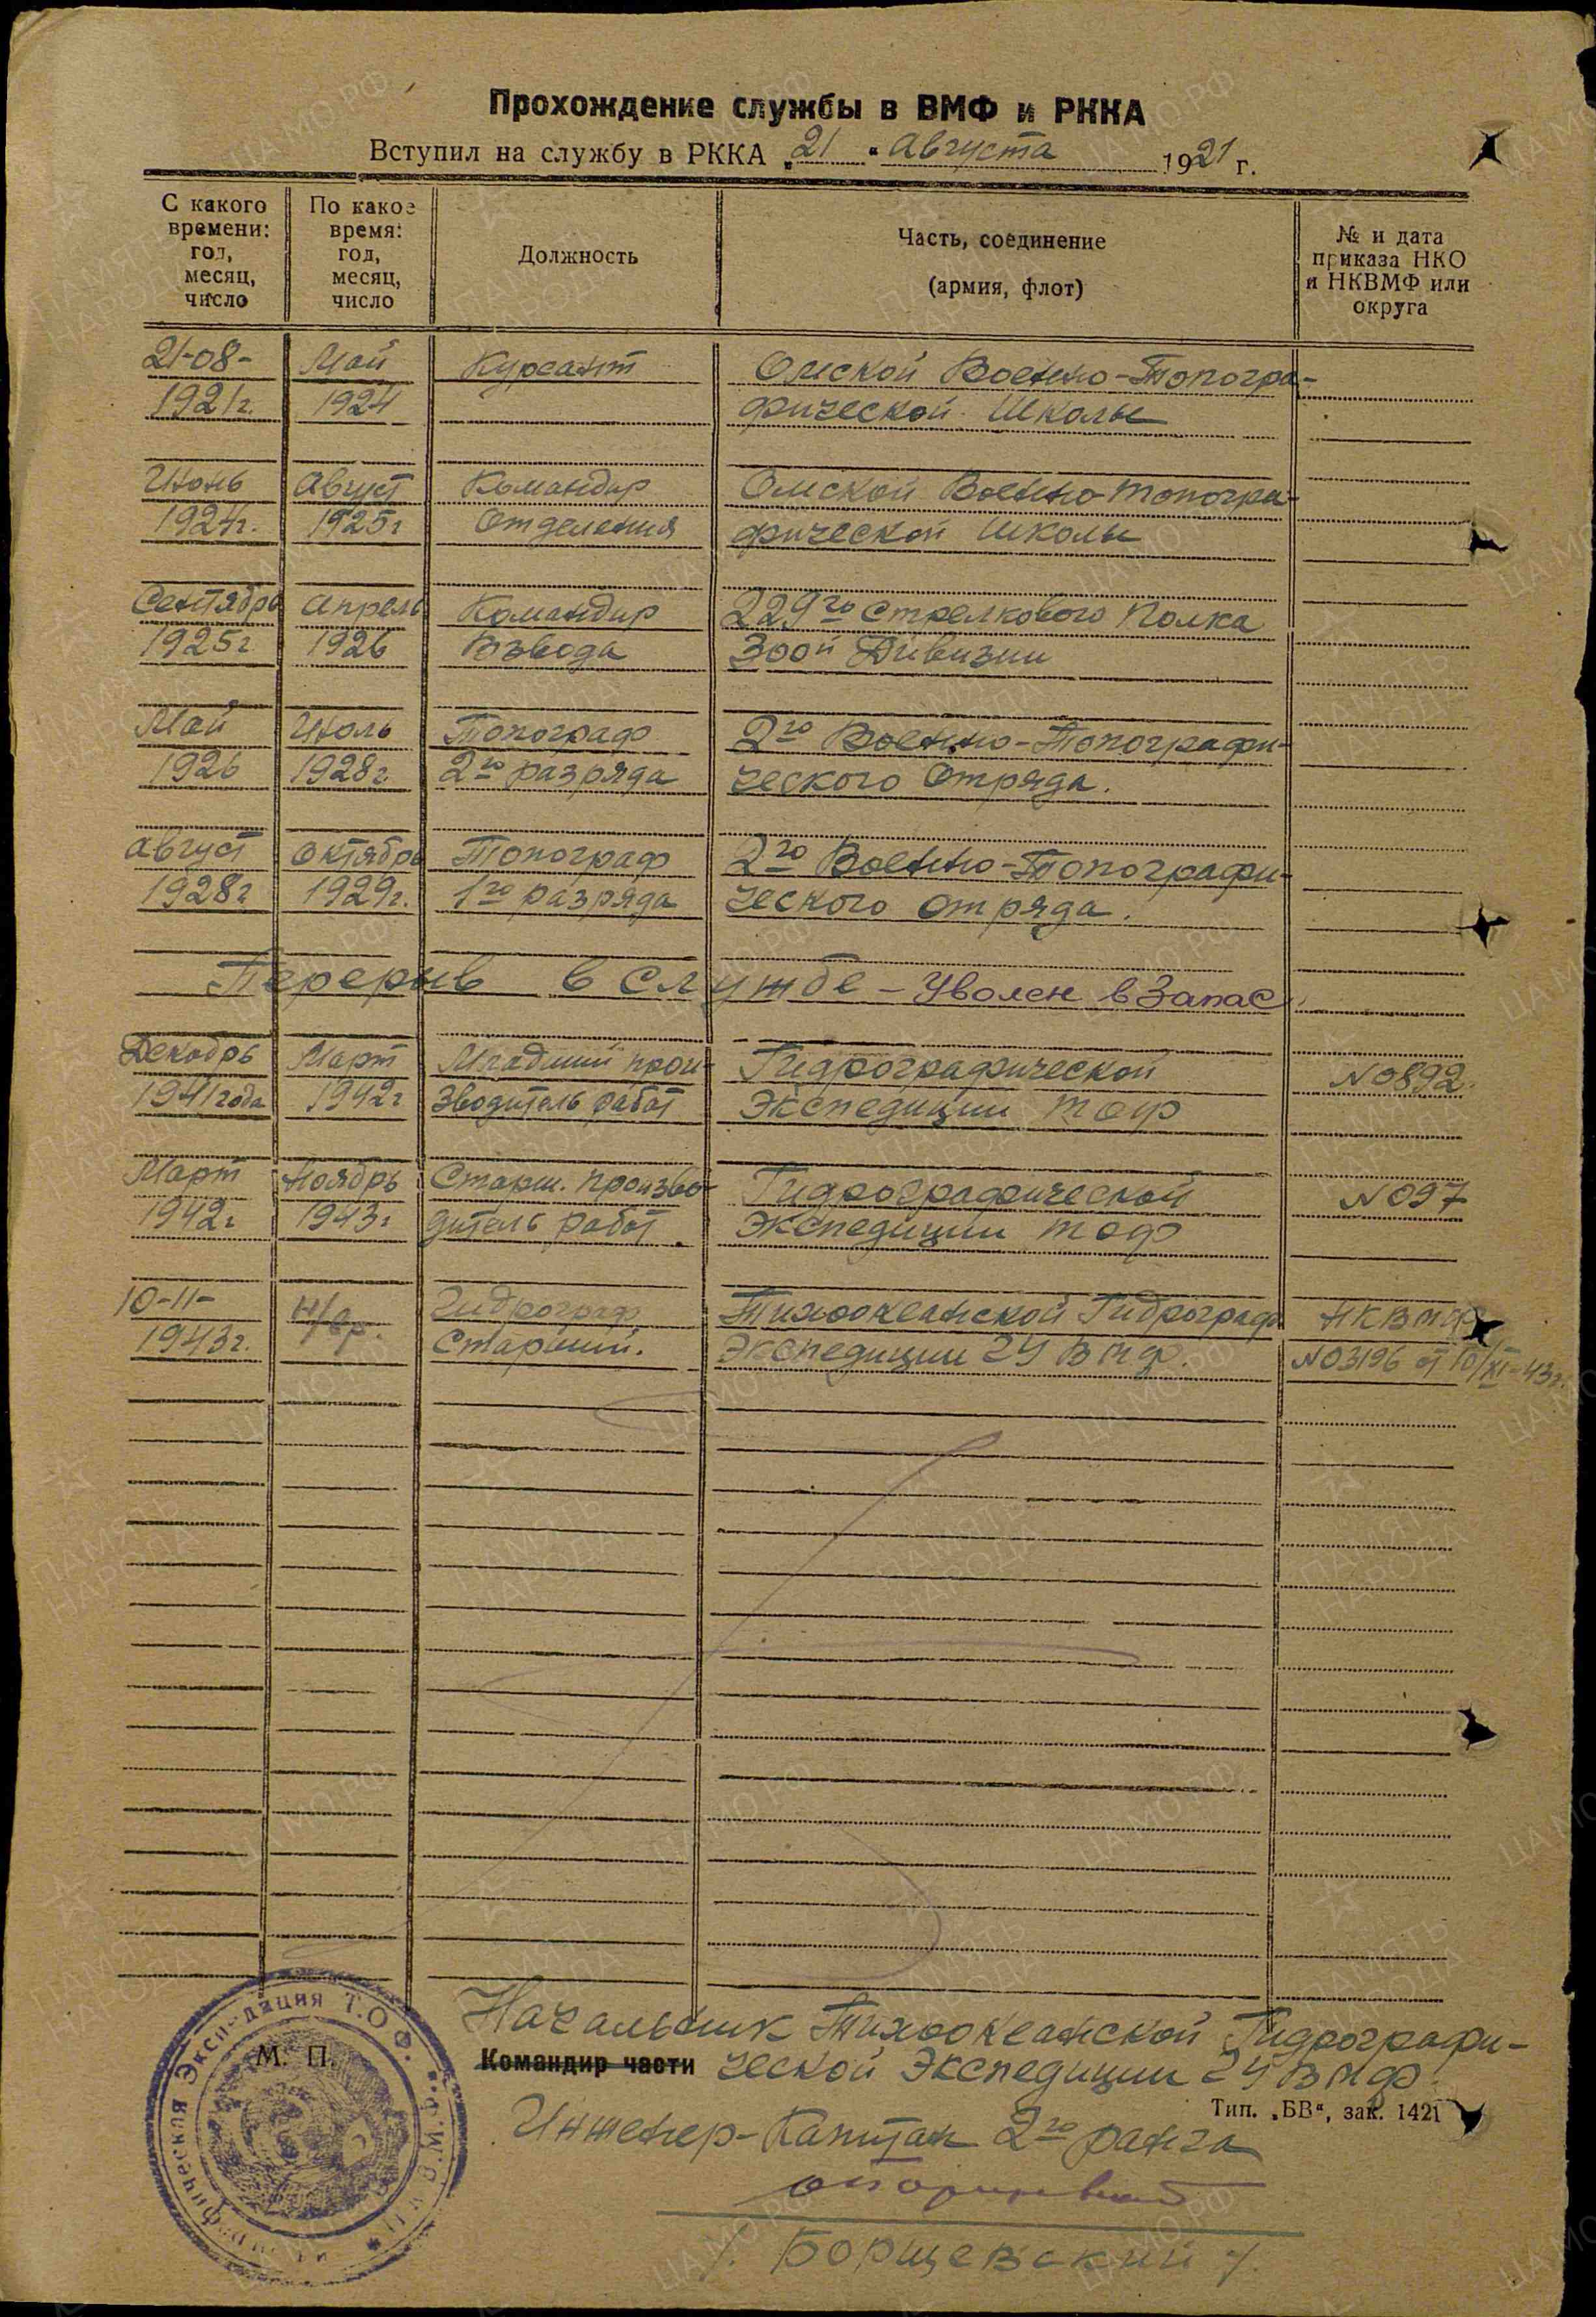 Прохождение службы в ВМФ и РККА
Вступил на службу в РККА „21“ Августа 1921 г.
С какого времени: год, месяц, число
По какое время: год, месяц, число
Должность
Часть, соединение (армия, флот)
№ и дата приказа НКО и НКВМФ или округа
21-08- Май Курсант Омской Военно-Топогра-
1921г. 1924 фической Школы
Июнь Август Командир Омской Военно-топогра-
1924г. 1925г Отделения фической Школы
Сентябрь Апрель Командир 229го Стрелкового Полка
1925г. 1926 Взвода 30ой Дивизии
Май Июль Топограф 2го Военно-Топографи-
1926 1928г. 2го разряда ческого Отряда.
Август Октябрь Топограф 2го Военно-Топографи-
1928г 1929г. 1го разряда ческого отряда.
Перерыв в службе – Уволен в Запас
Декабрь Март Младший прои- Гидрографической №0892.
1941 года 1942г зводитель работ Экспедиции ТОФ
Март Ноябрь Старш. произво- Гидрографической №097
1942г 1943г дитель работ. Экспедиции ТОФ
10-11- н/вр. Гидрограф Тихоокеанской Гидрограф НКВМФ
1943г. Старший. Экспедиции ГУ ВМФ. №03196 от 10/XI-43г.
Начальник Тихоокеанской Гидрографи-
Командир части ческой Экспедиции ГУ ВМФ.
М. П.
Тип. „БВ“, зак. 1421
Инженер-Капитан 2го ранга
/. Борщевский /.
Экспедиция Т.О.Ф.